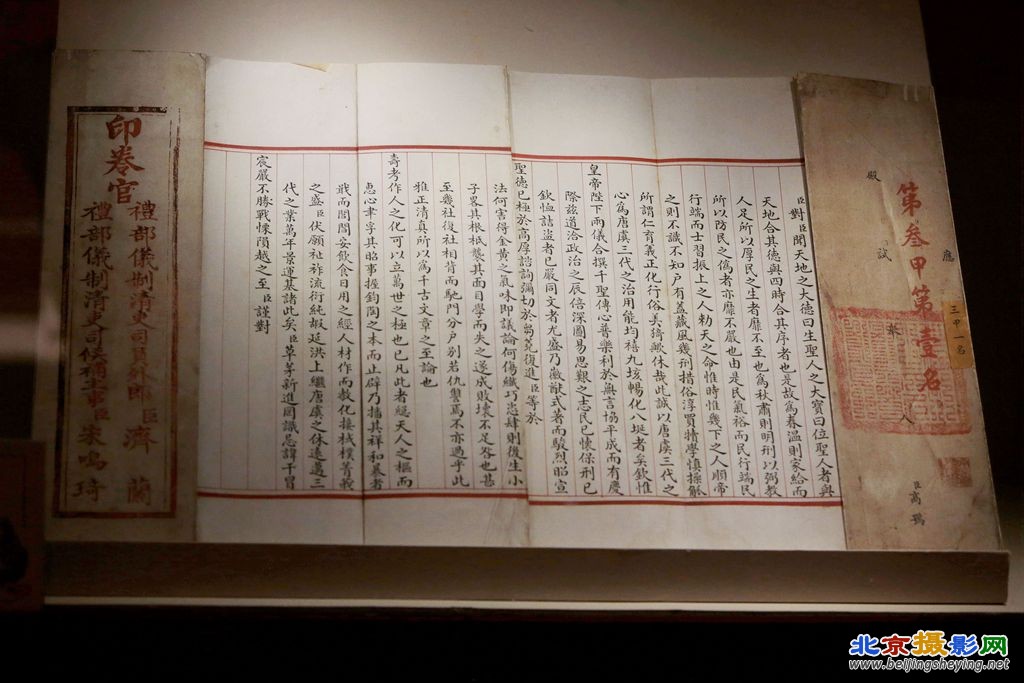 應
殿試舉人臣高鶚
第叁甲第壹名
三甲一名
臣對臣聞天地之大德曰生聖人之大寶曰位聖人者與
天地合其德與四時合其序者也是故為春溫則家給而
人足所以厚民之生者靡不至也為秋肅則明刑以弼教
所以防民之偽者亦靡不嚴也由是民氣裕而民行端民
行端而士習振上之人勑天之命惟時惟幾下之人順帝
之則不識不知戶有蓋藏風幾刑措俗淳買犢學慎操觚
所謂仁育義正化行俗美猗歟休哉此誠以唐虞三代之
心為唐虞三代之治用能均禧九垓暢化八埏者矣欽惟
皇帝陛下兩儀合撰千聖傳心普樂利於無言協平成而有慶
際茲道洽政治之辰倍深圖易思艱之志民已懷保刑已
欽恤詰盜者已嚴同文者尤盛乃嚴猷式著而駿烈昭宣
聖德已極於高厚諮詢彌切於芻蕘復進臣等於
法何害得金黃之氣味即議論何傷纖巧恣肆則後生小
子畧其根柢襲其面目學而失之遂成敗壞不足咎也甚
至幾社後社相背而馳門分戶別若仇讐焉不亦過乎此
雅正清真所以為千古文章之至論也
壽考作人之化可以立萬世之極也已凡此者經天人之樞而
惠心聿孚其昭事握鈞陶之本而止辟乃播其祥和暴者
戢而閭閻安飲食日用之經人材作而教化接棫樸菁莪
之盛臣伏願祉祚流衍純嘏延洪上繼唐虞之休遠邁三
代之業萬年景運基諸此矣臣草茅新進罔識忌諱干冒
宸嚴不勝戰慄隕越之至臣謹對
印卷官
禮部儀制清吏司員外郎臣濟蘭
禮部儀制清吏司候補主事臣朱鳴琦
北京摄影网
www.beijingsheying.net